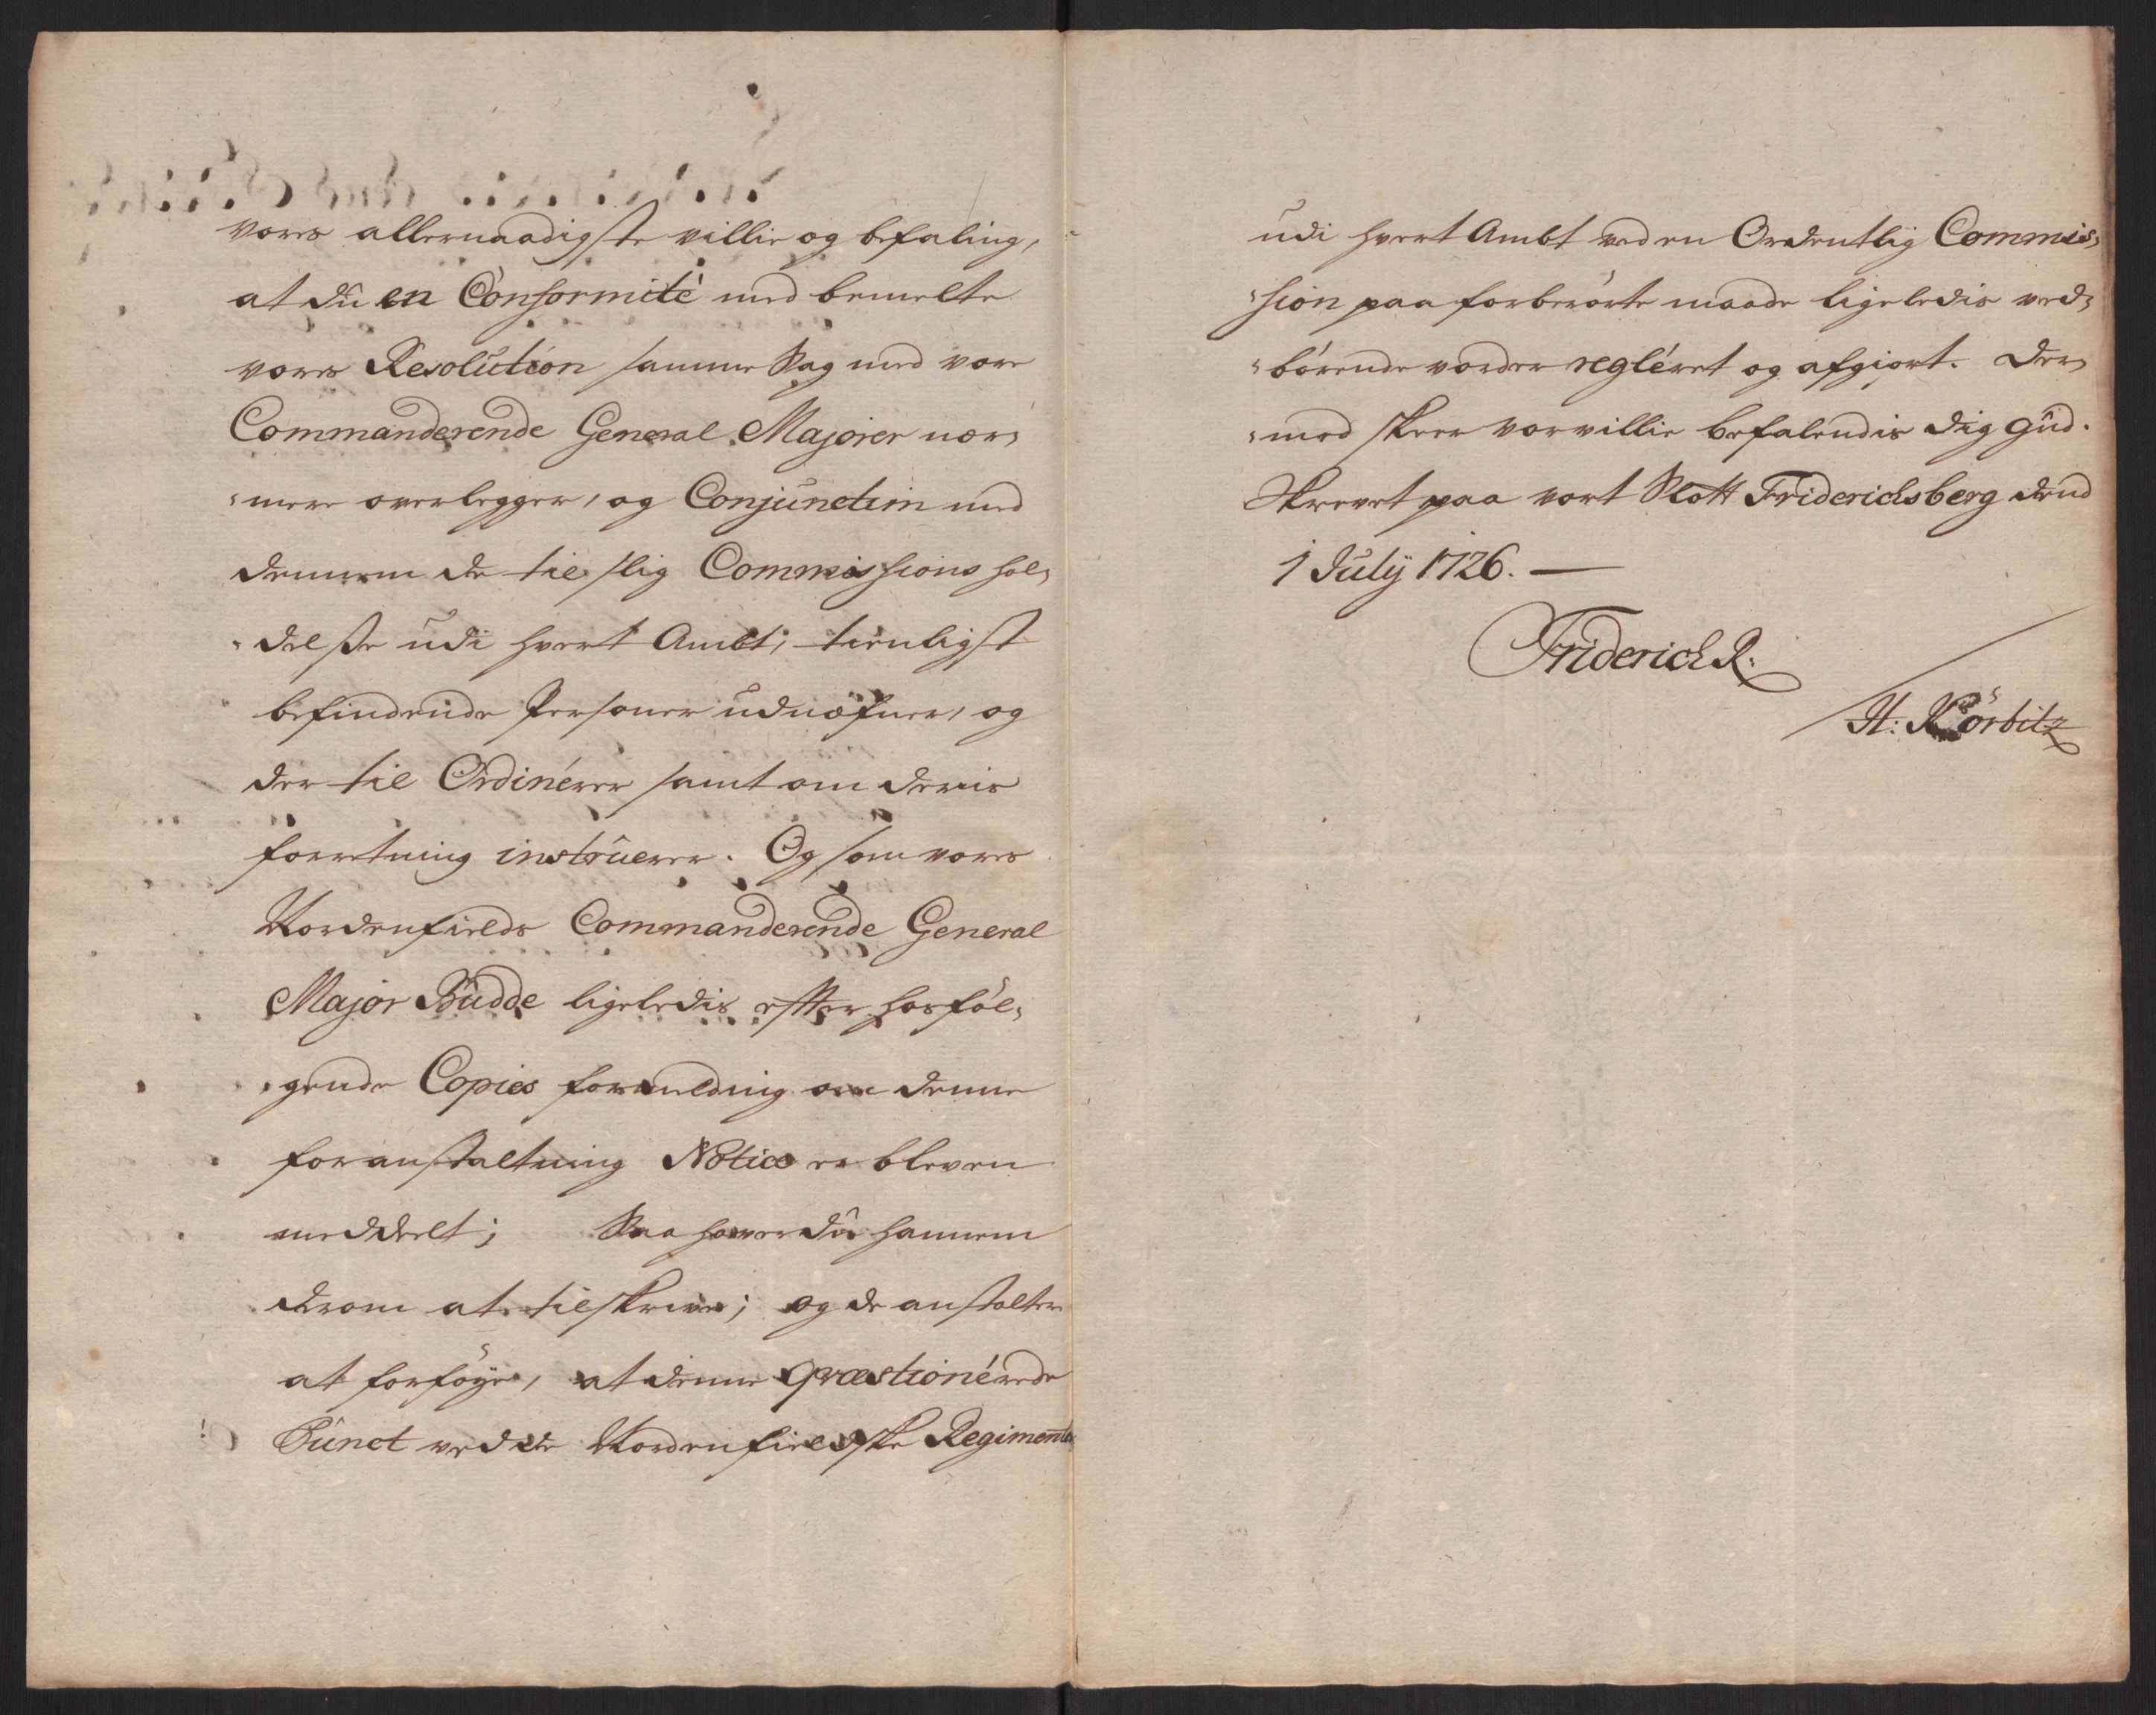 vores allernaadigste villie og befaling,
at du en Conformité med bemelte
vores Resolution samme Sag med vore
Commanderende General Majorer nær-
mere overlegger, og Conjunctim med
dennem de til slig Commissions hol-
delse udi hvert Ambt, tienligst
befindende Personer udnæfner, og
der til Ordinérer samt om deris
forretning instruerer. Og som vores
Nordenfields Commanderende General
Major Budde ligeledis efter hosføl-
gende Copies formelding om denne
foranstaltning Notice er bleven
meddelt; Saa haver du hannem
derom at tilskrive; og de anstalter
at forføye, at denne qvæstionérede
Punct ved de Nordenfieldske Regimenter
udi hvert Ambt ved en Ordentlig Commis-
sion paa forberørte maade ligeledis ved-
børende vorder regléret og afgiort. Der
med skeer vor villie befalendis dig Gud.
Skrevet paa vort Slott Friderichsberg dend
1 July 1726. —
Friderich R.
H: Körbitz